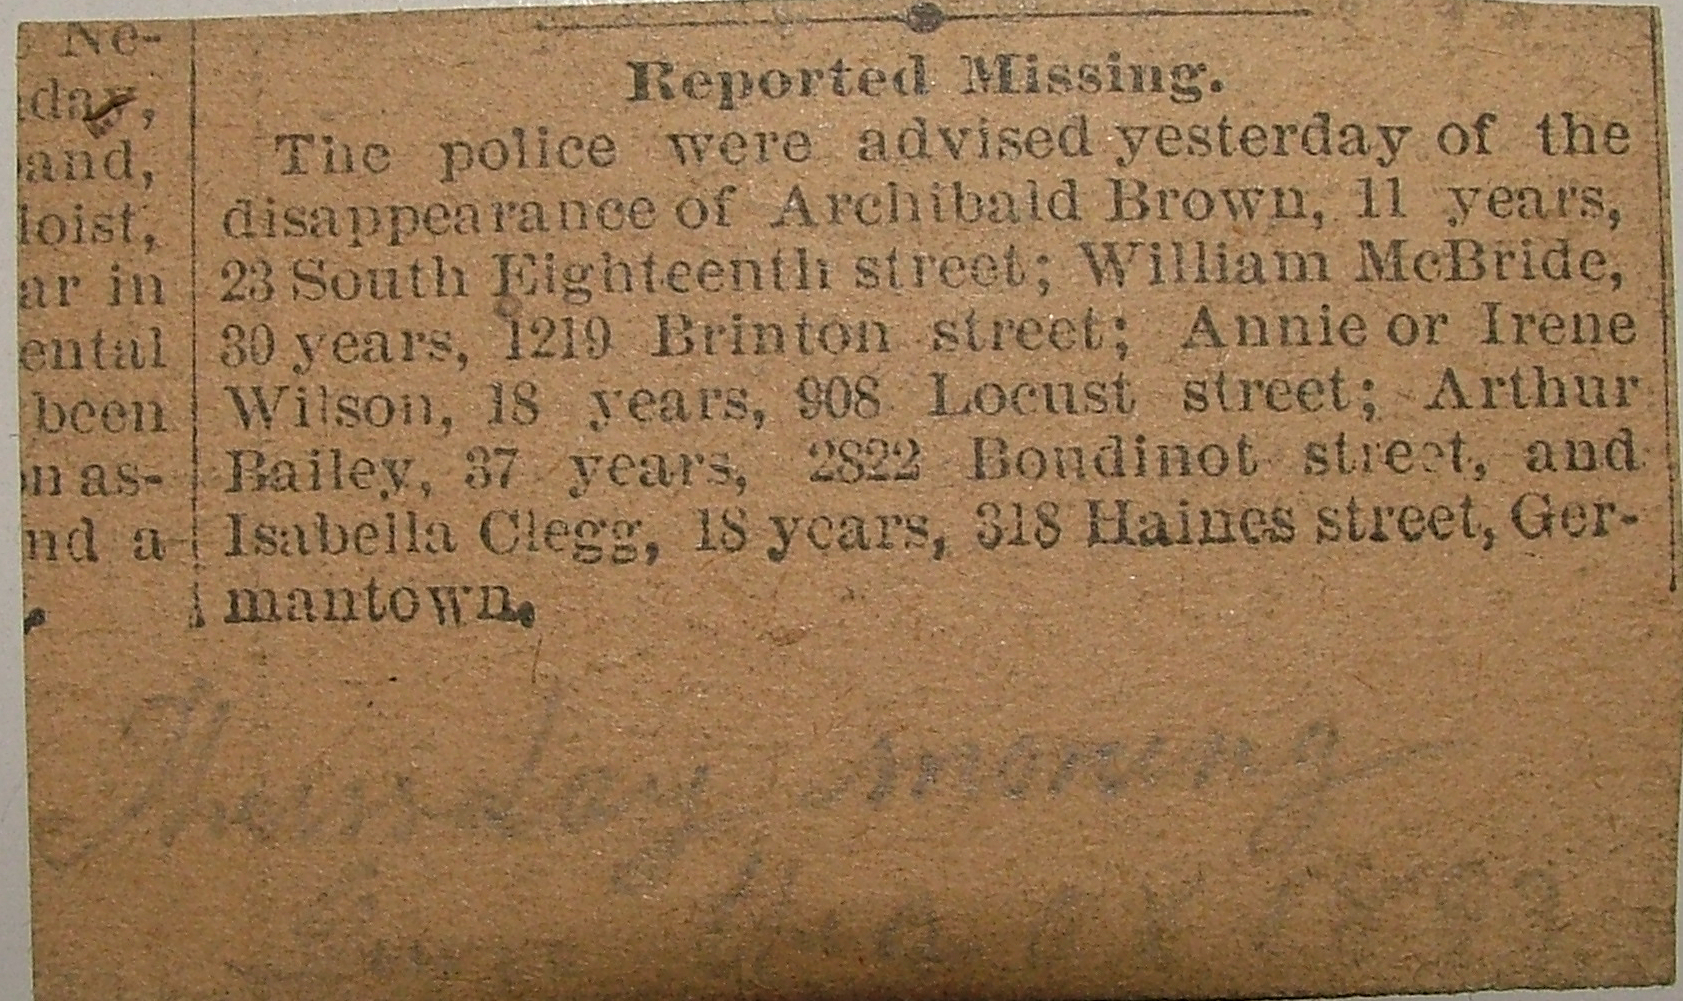 Ne-
day,
and,
loist,
ar in
ental
been
n as-
nd a
Reported Missing.
The police were advised yesterday of the
disappearance of Archibald Brown, 11 years,
23 South Eighteenth street; William McBride,
30 years, 1219 Brinton street; Annie or Irene
Wilson, 18 years, 908 Locust street; Arthur
Bailey, 37 years, 2822 Boudinot street, and
Isabella Clegg, 18 years, 318 Haines street, Ger-
mantown.
Thursday morning